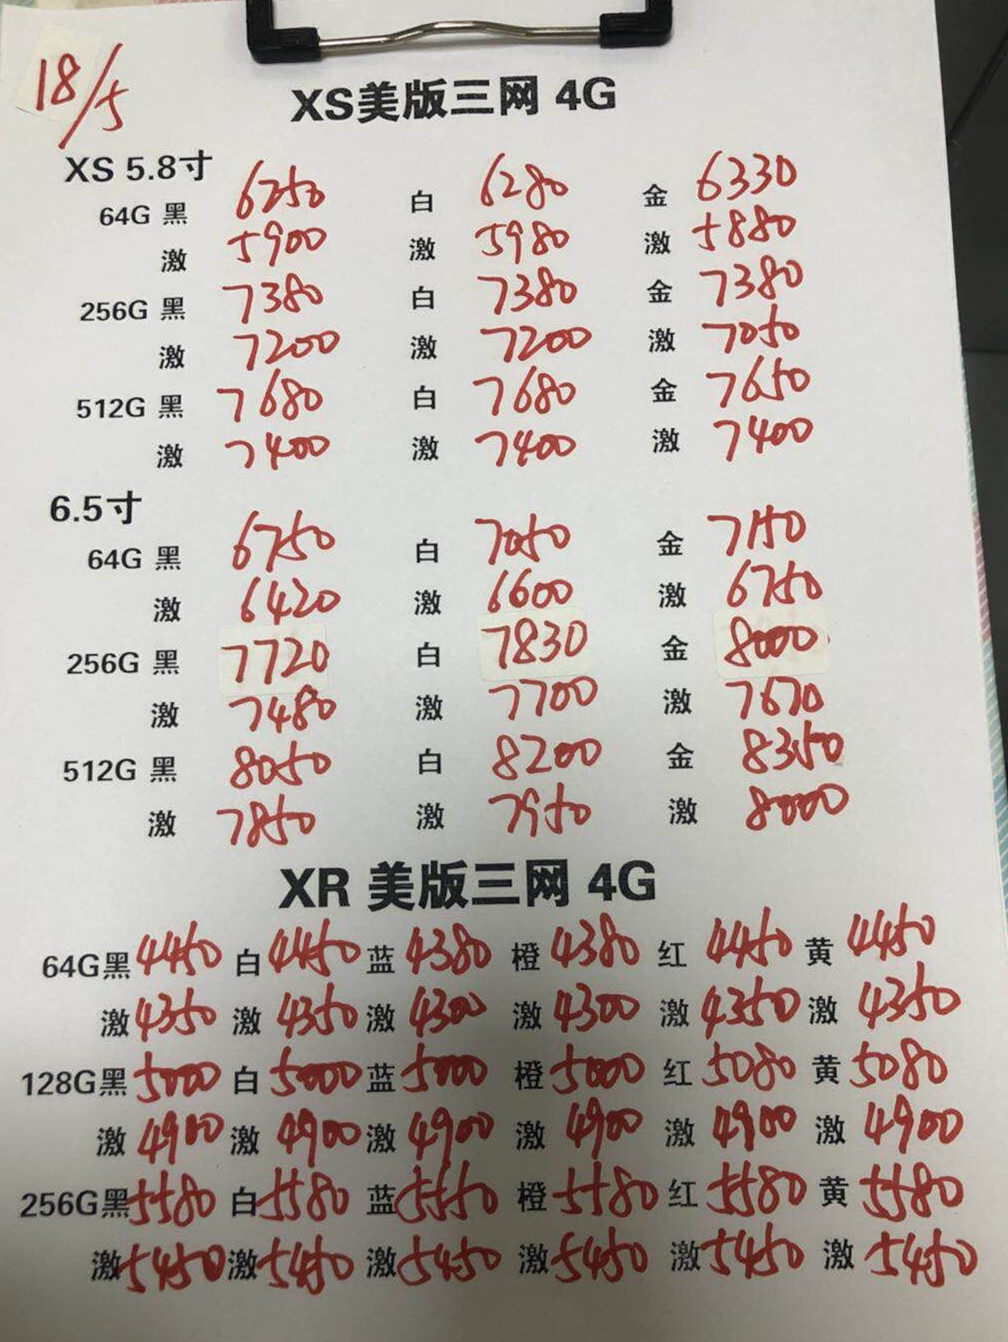 18/5
XS美版三网 4G
XS 5.8寸
64G 黑 6250 白 6280 金 6330
激 5900 激 5980 激 5880
256G 黑 7380 白 7380 金 7380
激 7200 激 7200 激 7050
512G 黑 7680 白 7680 金 7650
激 7400 激 7400 激 7400
6.5寸
64G 黑 6750 白 7050 金 7150
激 6420 激 6600 激 6750
256G 黑 7720 白 7830 金 8000
激 7480 激 7700 激 7670
512G 黑 8050 白 8200 金 8350
激 7850 激 7950 激 8000
XR 美版三网 4G
64G黑 4450 白 4450 蓝 4380 橙 4380 红 4450 黄 4450
激 4350 激 4350 激 4300 激 4300 激 4350 激 4350
128G黑 5000 白 5000 蓝 5000 橙 5000 红 5080 黄 5080
激 4900 激 4900 激 4900 激 4900 激 4900 激 4900
256G黑 5580 白 5580 蓝 5550 橙 5580 红 5580 黄 5580
激 5450 激 5450 激 5450 激 5450 激 5450 激 5450